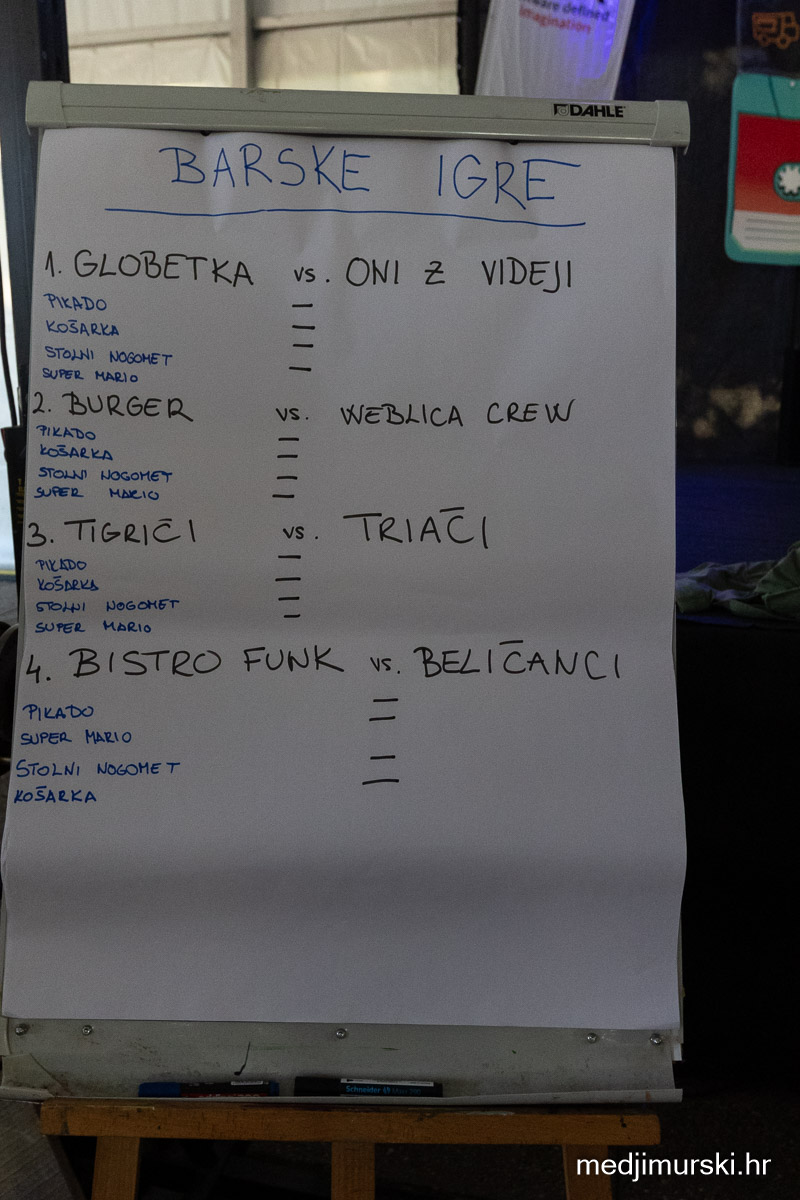 are defined
imagination
DAHLE
BARSKE IGRE
1. GLOBETKA vs. ONI Z VIDEJI
PIKADO —
KOŠARKA —
STOLNI NOGOMET —
SUPER MARIO —
2. BURGER vs. WEBLICA CREW
PIKADO —
KOŠARKA —
STOLNI NOGOMET —
SUPER MARIO —
3. TIGRIČI vs. TRIAČI
PIKADO —
KOŠARKA —
STOLNI NOGOMET —
SUPER MARIO —
4. BISTRO FUNK vs. BELIČANCI
PIKADO —
SUPER MARIO —
STOLNI NOGOMET —
KOŠARKA —
Schneider
medjimurski.hr